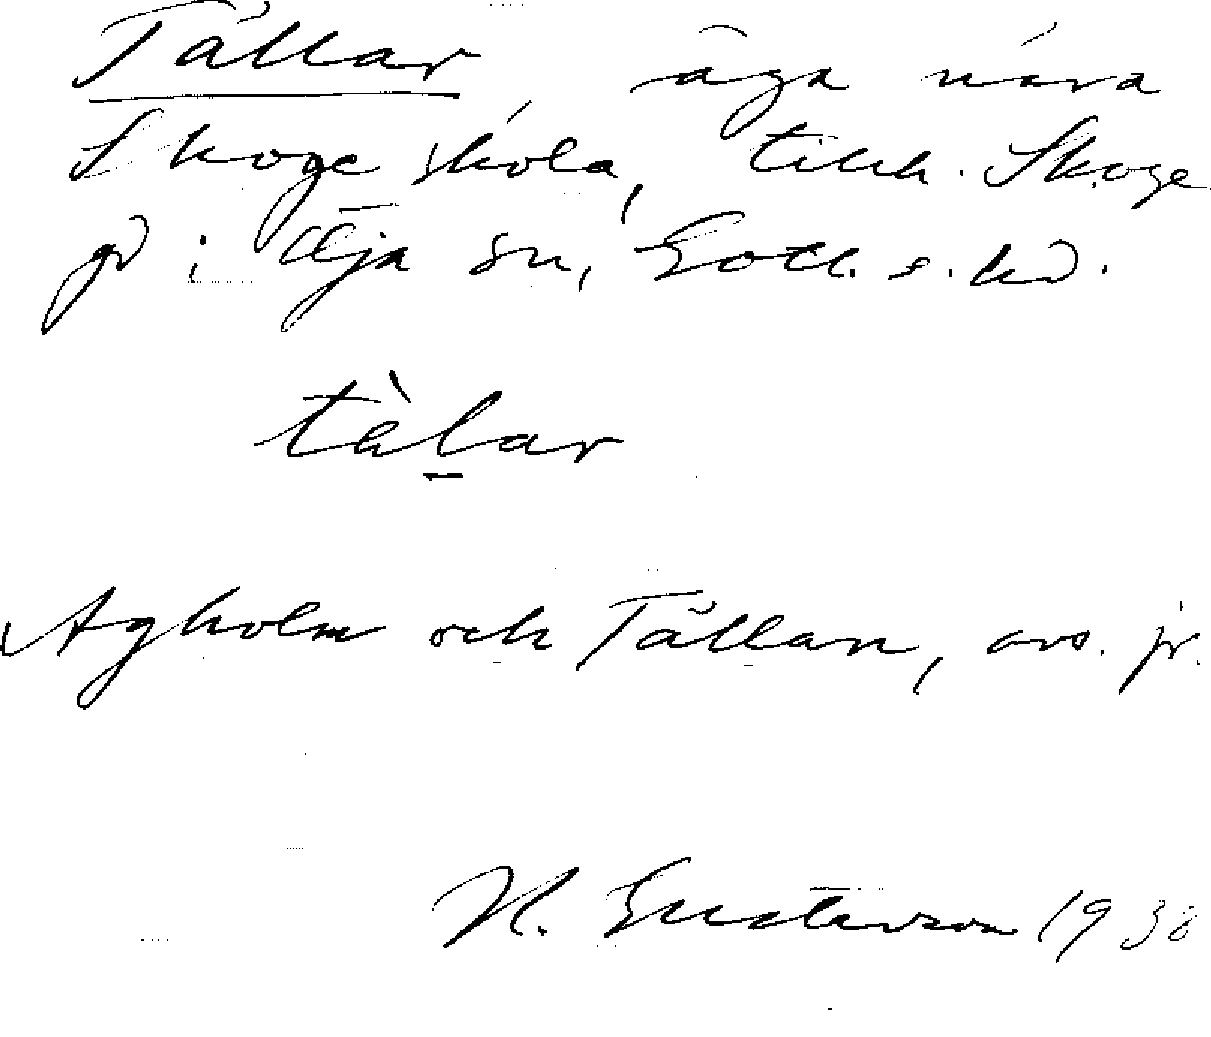 Tällar, äga nära
Skoge skola, tillh. Skoge
gd i Öja sn, Gotl. s. hd.
tàl̲ar
Agholm och Tällan, avs. jr.
H. Gustavson 1938